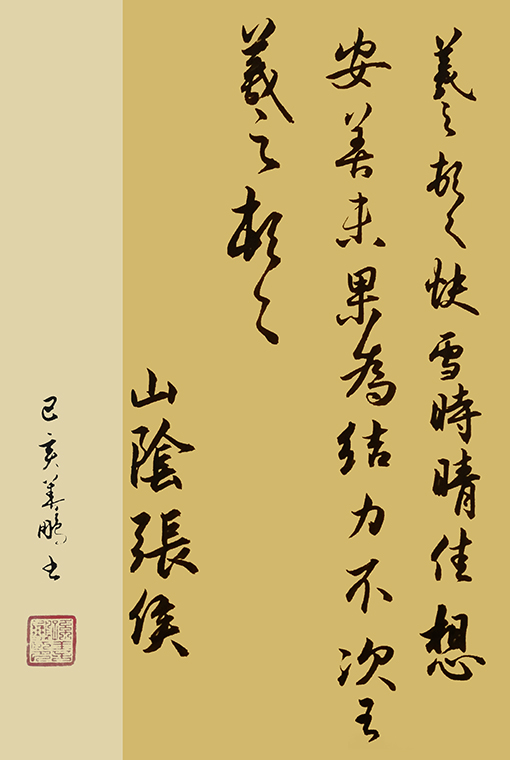 羲之頓首快雪時晴佳想
安善未果為結力不次王
羲之頓首
山陰張侯
己亥鵬书